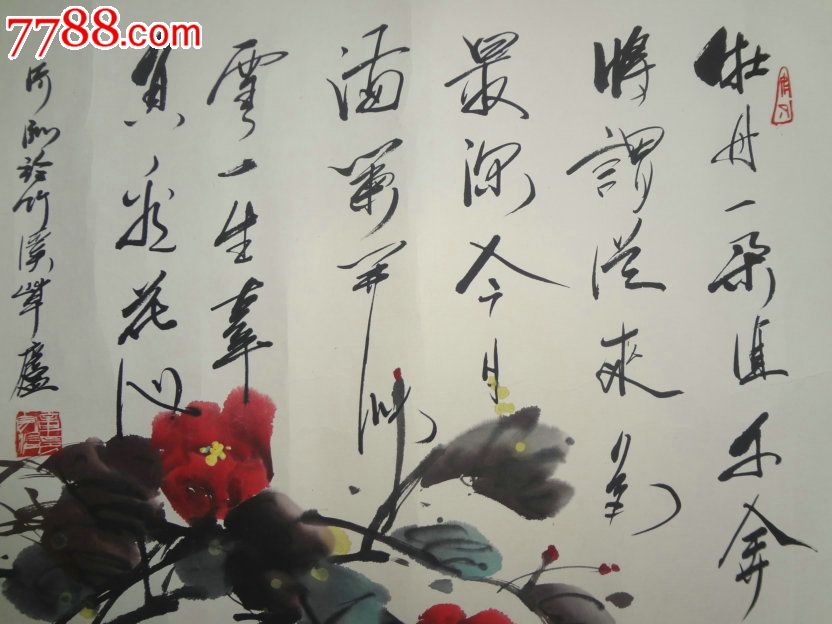 7788.com
牡丹一朵直千金
將謂從來色
最深今日
滿欄開似
雪一生辜
負看花心
於竹溪草廬